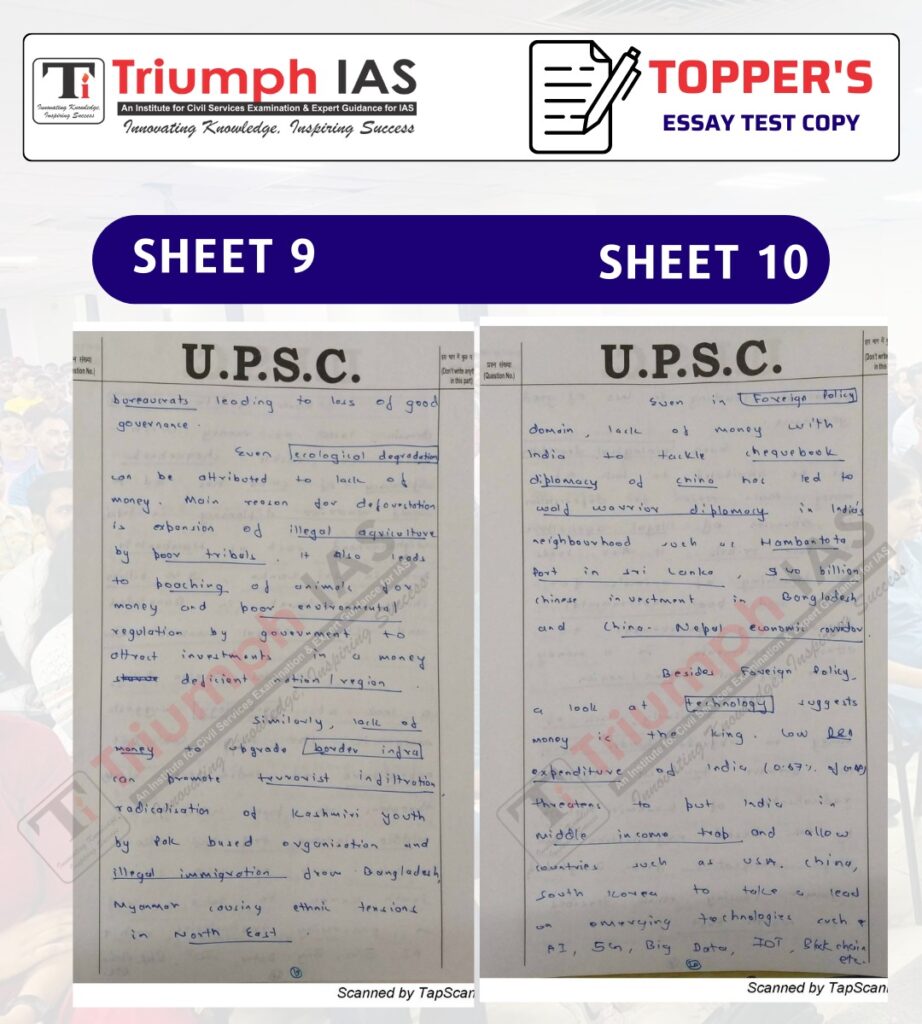 Ti
Innovating Knowledge,
Inspiring Success
Triumph IAS
An Institute for Civil Services Examination & Expert Guidance for IAS
Innovating Knowledge, Inspiring Success
TOPPER'S
ESSAY TEST COPY
SHEET 9
SHEET 10
संख्या
uestion No.)
U.P.S.C.
(Don't write any
in this part)
bureaucrats leading to loss of good
governance.
Even ecological degradation
can be attributed to lack of
money. Main reason for deforestation
is expansion of illegal agriculture
by poor tribals. It also leads
to poaching of animals for
money and poor environmental
regulation by government to
attract investments in a money
deficient nation/region.
Similarly, lack of
money to upgrade border infra
can promote terrorist infiltration
radicalisation of Kashmiri youth
by Pak based organisation and
illegal immigration from Bangladesh,
Myanmar causing ethnic tensions
in North East.
Scanned by TapScan
प्रश्न संख्या
(Question No.)
U.P.S.C.
(Don't write
in this
Even in Foreign Policy
domain, lack of money with
India to tackle chequebook
diplomacy of china has led to
wolf warrior diplomacy in India's
neighbourhood such as Hambantota
Port in Sri Lanka, $ 40 billion
chinese investment in Bangladesh
and China-Nepal economic corridor.
Besides Foreign Policy,
a look at technology suggests
money is the king. Low R&D
expenditure of India (0.67% of GDP)
threatens to put India in
middle income trap and allow
countries such as USA, China,
South Korea to take a lead
on emerging technologies such as
AI, 5G, Big Data, IOT, Block chain
etc.
Scanned by TapScan
Triumph IAS
An Institute for Civil Services Examination & Expert Guidance for IAS
Innovating Knowledge, Inspiring Success